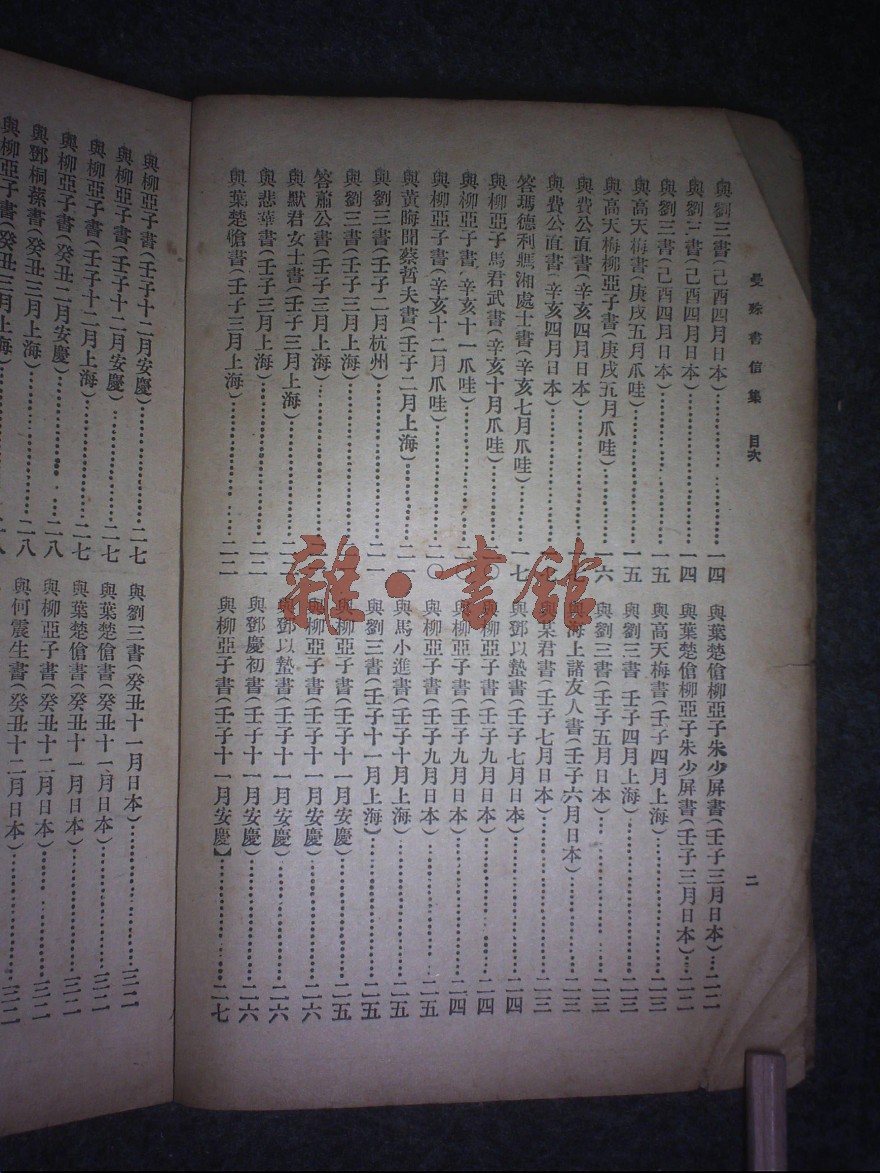 曼殊書信集　目次
二
與劉三書(己酉四月日本)…………一四
與劉三書(己酉四月日本)…………一四
與劉三書(己酉四月日本)…………一五
與高天梅書(庚戌五月爪哇)…………一五
與高天梅柳亞子書(庚戌五月爪哇)…………一六
與費公直書(辛亥四月日本)
與費公直書(辛亥四月日本)
答瑪德利瑪湘處士書(辛亥七月爪哇)…………一七
與柳亞子馬君武書(辛亥十月爪哇)
與柳亞子書(辛亥十一爪哇)
與柳亞子書(辛亥十二月爪哇)…………二〇
與黃晦聞蔡哲夫書(壬子二月上海)…………二一
與劉三書(壬子二月杭州)…………二一
與劉三書(壬子三月上海)
答蕭公書(壬子三月上海)
與默君女士書(壬子三月上海)
與悲華書(壬子三月上海)…………二二
與葉楚愴書(壬子三月上海)…………二二
與葉楚傖柳亞子朱少屏書(壬子三月日本)…二二
與葉楚傖柳亞子朱少屏書(壬子三月日本)…二二
與高天梅書(壬子四月上海)…………二三
與劉三書(壬子四月上海)…………二三
與劉三書(壬子五月日本)…………二三
與海上諸友人書(壬子六月日本)…………二三
與某君書(壬子七月日本)…………二三
與鄧以蟄書(壬子七月日本)…………二四
與柳亞子書(壬子九月日本)…………二四
與柳亞子書(壬子九月日本)…………二四
與柳亞子書(壬子九月日本)…………二五
與馬小進書(壬子十月上海)…………二五
與劉三書(壬子十一月上海)…………二五
與柳亞子書(壬子十一月安慶)…………二五
與柳亞子書(壬子十一月安慶)…………二六
與鄧以蟄書(壬子十一月安慶)…………二六
與鄧慶初書(壬子十一月安慶)…………二六
與柳亞子書(壬子十一月安慶)…………二七
與柳亞子書(壬子十二月安慶)…………二七
與柳亞子書(壬子十二月安慶)…………二七
與柳亞子書(壬子十二月上海)…………二七
與柳亞子書(癸丑二月安慶)…………二八
與鄧桐蓀書(癸丑三月上海)…………二八
與柳亞子書(癸丑三月上海)
與劉三書(癸丑十一月日本)…………三二
與葉楚傖書(癸丑十一月日本)…………三二
與葉楚傖書(癸丑十一月日本)…………三二
與柳亞子書(癸丑十二月日本)…………三二
與何震生書(癸丑十二月日本)…………三二
雜·書館